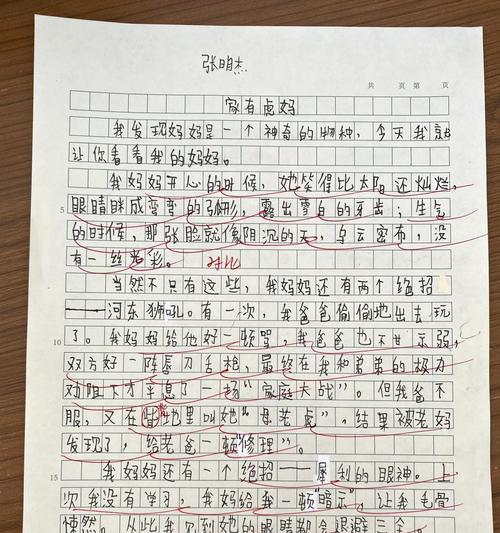 张明杰
共 页 第 页
家有虎妈
我发现妈妈是一个神奇的物种，今天我就
让你看看我的妈妈。
我妈妈开心的时候，她笑得比太阳还灿烂，
眼睛眯成弯弯的弧形，露出雪白的牙齿；生气
5
的时候，那张脸就像阴沉的天，乌云密布，没
有一丝光彩。 对比
当然不只有这些，我妈妈还有两个绝招
——河东狮吼。有一次，我爸爸偷偷地出去玩
了。我妈妈给他好一顿骂，我爸爸也不甘示弱，
10
双方好一阵唇刀舌枪，最终在我和弟弟的极力
劝阻下才平息了一场“家庭大战”。但我爸不
服，又在背地里叫她“母老虎”，结果被老妈
发现了，给老爸一顿“修理”。
我妈妈还有一个绝招——犀利的眼神。上
15
次我没有学习，我妈给我一顿“暗示”，让我毛骨
悚然。从此我见到她的眼睛都会退避三舍。